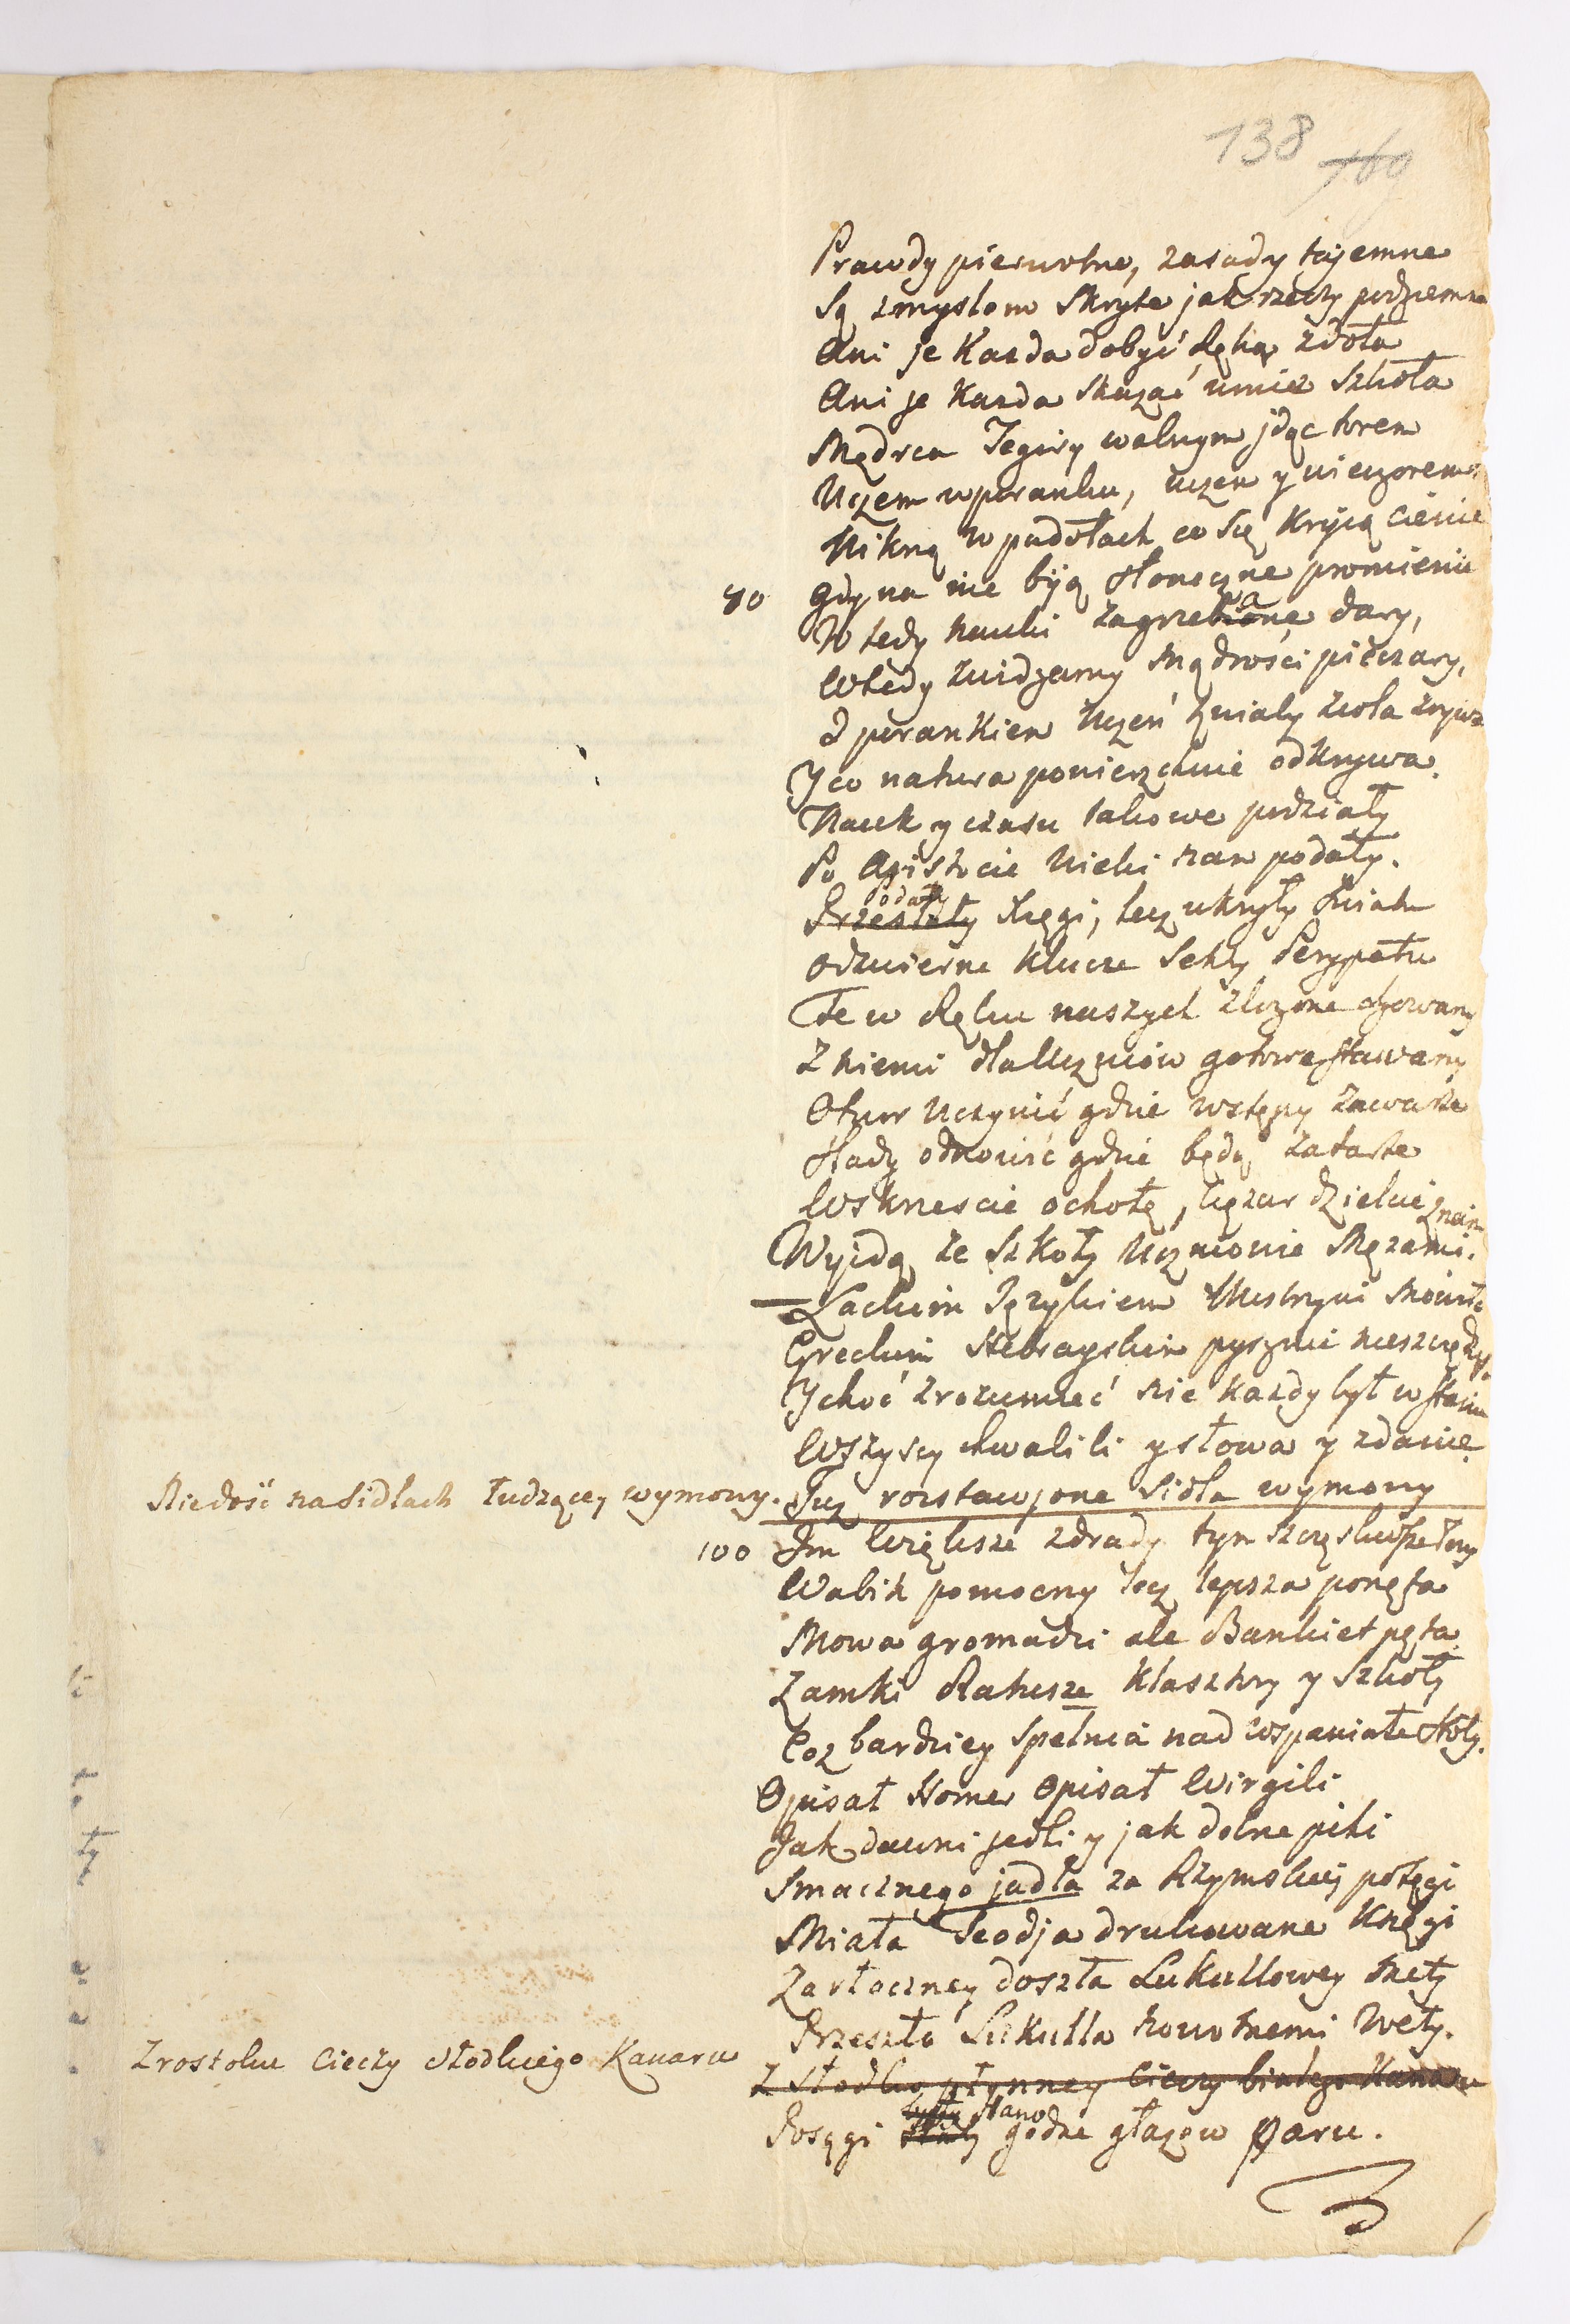 138 169
Prawdy pierwotne, zasady tajemne
Są zmysłom skryte jak rzeczy podziemne
Ani je Kazda dobyć Ręka zdoła
Ani je Kazda skazać umie Szkoła
Mędrca Tegiry walnym jdąc torem
Uczem w poranku, uczem y wieczorem.
Nikną w padołach co się Kryią cienie
80 Gdy na nie biją słoneczne promienie
W tedy nauki zagrzebane dary,
Wtedy widzamy Mądrości pieczary,
I porankiem Uczeń zioła zrywa
Y co natura powierzchnie odkrywa.
Nauk y czasu takowe podziały
Po Aristocie Wieki nam podały.
Przestały podały Xięgi, lecz ukryły swiatu
Odzwierne Klucze Sekty Perypatu
Te w Ręku naszych złozone chowamy
Z niemi dla Uczniów gotowe stawamy
Otwor uczynić gdzie wstępy zawarte
Slady odnowić gdzie będą zatarte
Wskrzescie ochotę, cięzar dzielcie z nami
Wyjdą ze Szkoły Uczniowie Męzami.
Lackim Językiem Mistrzyni
Greckim Hebrayskim pysznie
Y choć zrozumieć nie kazdy był w stanie
Wszyscy chwalili y słowa y zdanie.
Niedość na Sidłach łudzącey wymowy. Juz rozstawjone Sidła wymowy
100 Im Większe zdrady tym szczęsliwsze łowy
Wabik pomocny lecz lepsza ponęta
Mowa gromadzi ale Bankiet pęta.
Zamki Ratusze Klasztory y Szkoły
Coz bardziey spełnia nad wspaniałe stoły.
Opisał Homer Opisał Wirgili
Jak dawni jedli y jak dolne pili
Smacznego jadła za Rzymskiej potęgi
Miała Skodja drukowane Księgi
Zarłoczney doszła Lukullowey Mety
Przeszła Lukulla nowotnemi Wety.
Zrostoku Cieczy słodkiego Kanaru Z słodko płynney Cieczy białego Kanaru
Posągi stały godne głazow Paru.